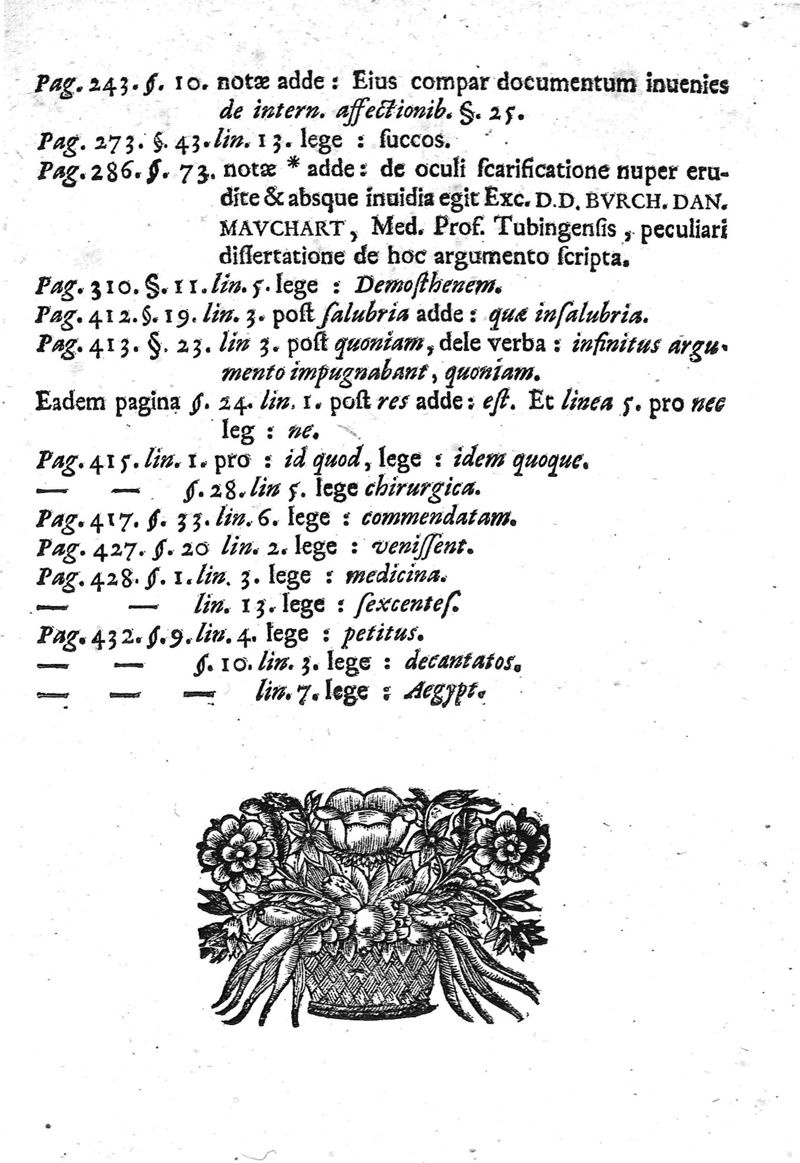 Pag. 243. §. 10. notæ adde : Eius compar documentum inuenies
de intern. affectionib. §. 25.
Pag. 273. §. 43. lin. 13. lege : ſuccos.
Pag. 286. §. 73. notæ * adde : de oculi ſcarificatione nuper eru-
dite & absque inuidia egit Exc. D. D. BVRCH. DAN.
MAVCHART, Med. Prof. Tubingenſis, peculiari
diſſertatione de hoc argumento ſcripta.
Pag. 310. §. 11. lin. 5. lege : Demoſthenem.
Pag. 412. §. 19. lin. 3. poſt ſalubria adde : quæ inſalubria.
Pag. 413. §. 23. lin 3. poſt quoniam, dele verba : infinitus argu-
mento impugnabant, quoniam.
Eadem pagina §. 24. lin. 1. poſt res adde : eſt. Et linea 5. pro nec
leg : ne.
Pag. 415. lin. 1. pro : id quod, lege : idem quoque.
— — §. 28. lin 5. lege chirurgica.
Pag. 417. §. 33. lin. 6. lege : commendatam.
Pag. 427. §. 20 lin. 2. lege : veniſſent.
Pag. 428. §. 1. lin. 3. lege : medicina.
— — lin. 13. lege : ſexcenteſ.
Pag. 432. §. 9. lin. 4. lege : petitus.
— — §. 10. lin. 3. lege : decantatos.
— — — lin. 7. lege : Aegypt.